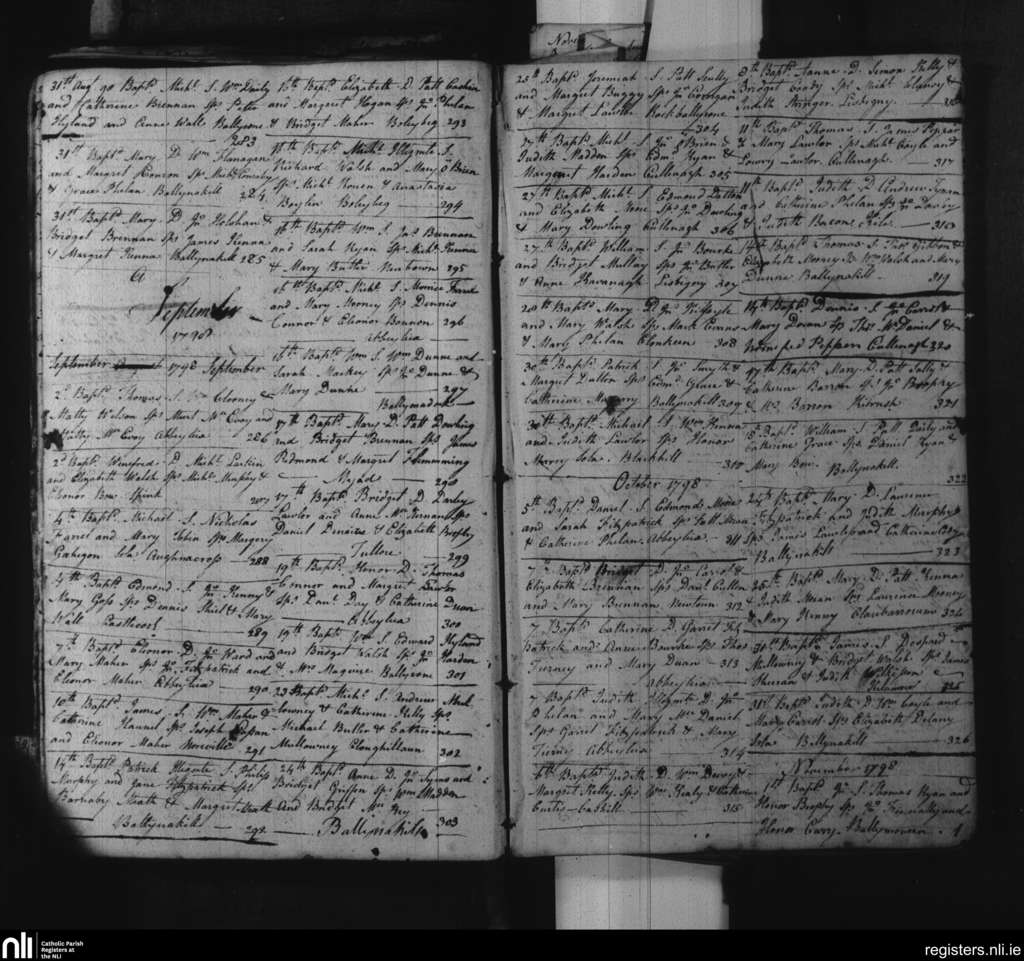 Nove
31st Aug 98 Bapt. Mich. S. Wm Daily
and Catherine Brennan Sps Peter
Hyland and Anne Wall Ballyrone
283
31st Bapt. Mary D. Wm Flanagan
and Margret Sps Mich.
& Grace Phelan Ballynakill 284
31st Bapt. Mary D. Jno Holohan &
Bridget Brennan Sps James Kenna
& Margret Kenna Ballynakill 285
September
1798
September 1798 September
2d Bapt. Thomas S. Wm Clooney &
Matty Nelson Sps Murt. Mc Evoy and
Mc Evoy Abbylia 286
2d Bapt. Winefred D. Mich. Larkin
and Elizabeth Walsh Sps Mich. Murphy &
Elenor Bow Spink 287
4th Bapt. Michael S. Nicholas
Farrel and Mary Tobin Sps Margery
Gahagon Sola Aughnacross 288
4th Bapt. Edmond S. Jno Kenny &
Mary Goss Sps Dennis Shiel & Mary
Wall Castlecoch 289
7th Bapt. Elionor D. Jno Ward and
Mary Maher Sps Jno Fitzpatrick and
Elenor Maher Abbylia 290
10th Bapt. James S. Wm Maher &
Catherine Sps Joseph
and Elionor Maher 291
14th Bapt. Patrick Illegmte S. Philip
Murphy and Jane Fitzpatrick Sps
Barnaby Heath & Margret Heath
Ballynakill 292
16th Bapt. Elizabeth D. Patt
and Margret Hogan Sps Jno Phelan
& Bridget Maher Boleybeg 293
16th Bapt. Mich. Illegmte S.
Richard Walsh and Mary O Brien
Sps Mich. Ronen & Anastatia
Boleybeg 294
16th Bapt. Wm S. Jas Brennan
and Sarah Ryan Sps Mich. Kenna
& Mary Butler Newtown 295
16th Bapt. Mich. S. Morrice
and Mary Mooney Sps Dennis
Connor & Elionor Brennan 296
Abbylia
16th Bapt. Wm S. Wm Dunne and
Sarah Mackey Sps Jno Dunne &
Mary Dunne 297
Ballymadock
17th Bapt. Mary D. Patt Dowling
and Bridget Brennan Sps James
Redmond & Margret Flemming
298
17th Bapt. Bridget D. Darley
Lawlor and Anne Mc Sps
Daniel & Elizabeth Brophy
Tullore 299
19th Bapt. Honor D. Thomas
Connor and Margret Lawlor
Sps Danl Day & Catherine Doran
Abbylia 300
19th Bapt. Wm S. Edward Hyland
and Bridget Walsh Sps Jno Harden
& Mrs Maguire Ballyrone 301
23 Bapt. Mich. S. Andrew Mul
lowney & Catherine Kelly Sps
Michael Butler & Catherine
Mullowney Cloughllaun 302
24th Bapt. Anne D. Jno Syms and
Bridget Griffin Sps Wm Madden
And Bridget
Ballynakill 303
25th Bapt. Jeremiah S. Patt Scully
and Margret Buggy Sps Jno Corrigan
& Margret Lawlor Rockballyrone
304
27th Bapt. Mich. S. Jno O'Brien &
Judith Madden Sps Edmd Ryan &
Margret Harden Cullenagh 305
27th Bapt. Mich. S. Edmond Dalton
and Elizabeth Nose Sps Jno Dowling
& Mary Dowling Cullenagh 306
27th Bapt. William S. Jno Bourke
and Bridget Mullay Sps Jno Butler
& Anne Kavanagh Lisbigny 307
28th Bapt. Mary D. Jno Kifoyle
and Mary Walsh Sps Mark Evans
& Mary Phelan Clonkeen 308
30th Bapt. Patrick S. Jno Smyth &
Margret Dalton Sps Edmd Grace &
Catherine Ballynakill 309
30th Bapt. Michael S. Wm Kenna
and Judith Lawlor Sps Honor
Morry Sola Blackhill 310
October 1798
5th Bapt. Daniel S. Edmond Moore
and Sarah Fitzpatrick Sps Patt Mean
& Catherine Phelan Abbylia 311
7 Bapt. Bridget D. Jno Carrol &
Elizabeth Brennan Sps Danl Cullen
and Mary Brennan Newtown 312
7 Bapt. Catherine D. Garret Fitz
Patrick and Anne Bourke Sps Thos
Tierney and Mary Dunn 313
Abbylia
7 Bapt. Judith Illegmte D. Jno
Phelan and Mary Mc Daniel
Sps Garret Fitzpatrick & Mary
Tierney Abbylia 314
8th Bapt. Judith D. Wm Dwoy &
Margret Kelly Sps Wm Kealy & Catherine
Curtis 315
8th Bapt. Anne D. Simon Skelly &
Bridget Sps Mich. Clooney &
Judith Stringer Lisbigny 316
11th Bapt. Thomas S. James Pepper
& Mary Lawlor Sps Mich. Coyle and
Lowry Lawlor Cullenagh 317
11th Bapt. Judith D. Andrew
Catherine Phelan Sps Jno Darby
& Judith Bacon 318
14th Bapt. Thomas S. Pat. &
Elizabeth Mooney Sps Wm Walsh and Mary
Dunne Ballynakill 319
14th Bapt. Dennis S. Jno Carrol &
Mary Doran Sps Thos Mc Daniel &
Winifred Peppers Cullenagh 320
17th Bapt. Mary D. Patt Tally &
Catherine Barron Sps Jno Brophy
& Barron Kilrush 321
18 Bapt. William S. Patt Daily and
Catherine Grace Sps Daniel Ryan &
Mary Bow Ballynakill
322
24th Bapt. Mary D. Laurence
Fitzpatrick and Judith Murphy
Sps James Lawler and Catherine Cody
Ballynakill 323
26th Bapt. Mary D. Patt Kenna
& Judith Mean Sps Laurence Mooney
& Mary Kenny Clonbarrow 324
31st Bapt. James S. Despard
Mullowney & Bridget Walsh Sps James
Sheeran & Judith Wilkisson
325
31st Bapt. Judith D. Wm Coyle and
Mary Carrol Sps Elizabeth Delany
Sola Ballynakill 326
November 1798
1st Bapt. Jno S. Thomas Ryan and
Honor Brophy Sps Jno Finnally and
Honor Ballymoreen 1
nli Catholic Parish
Registers at
the NLI
registers.nli.ie